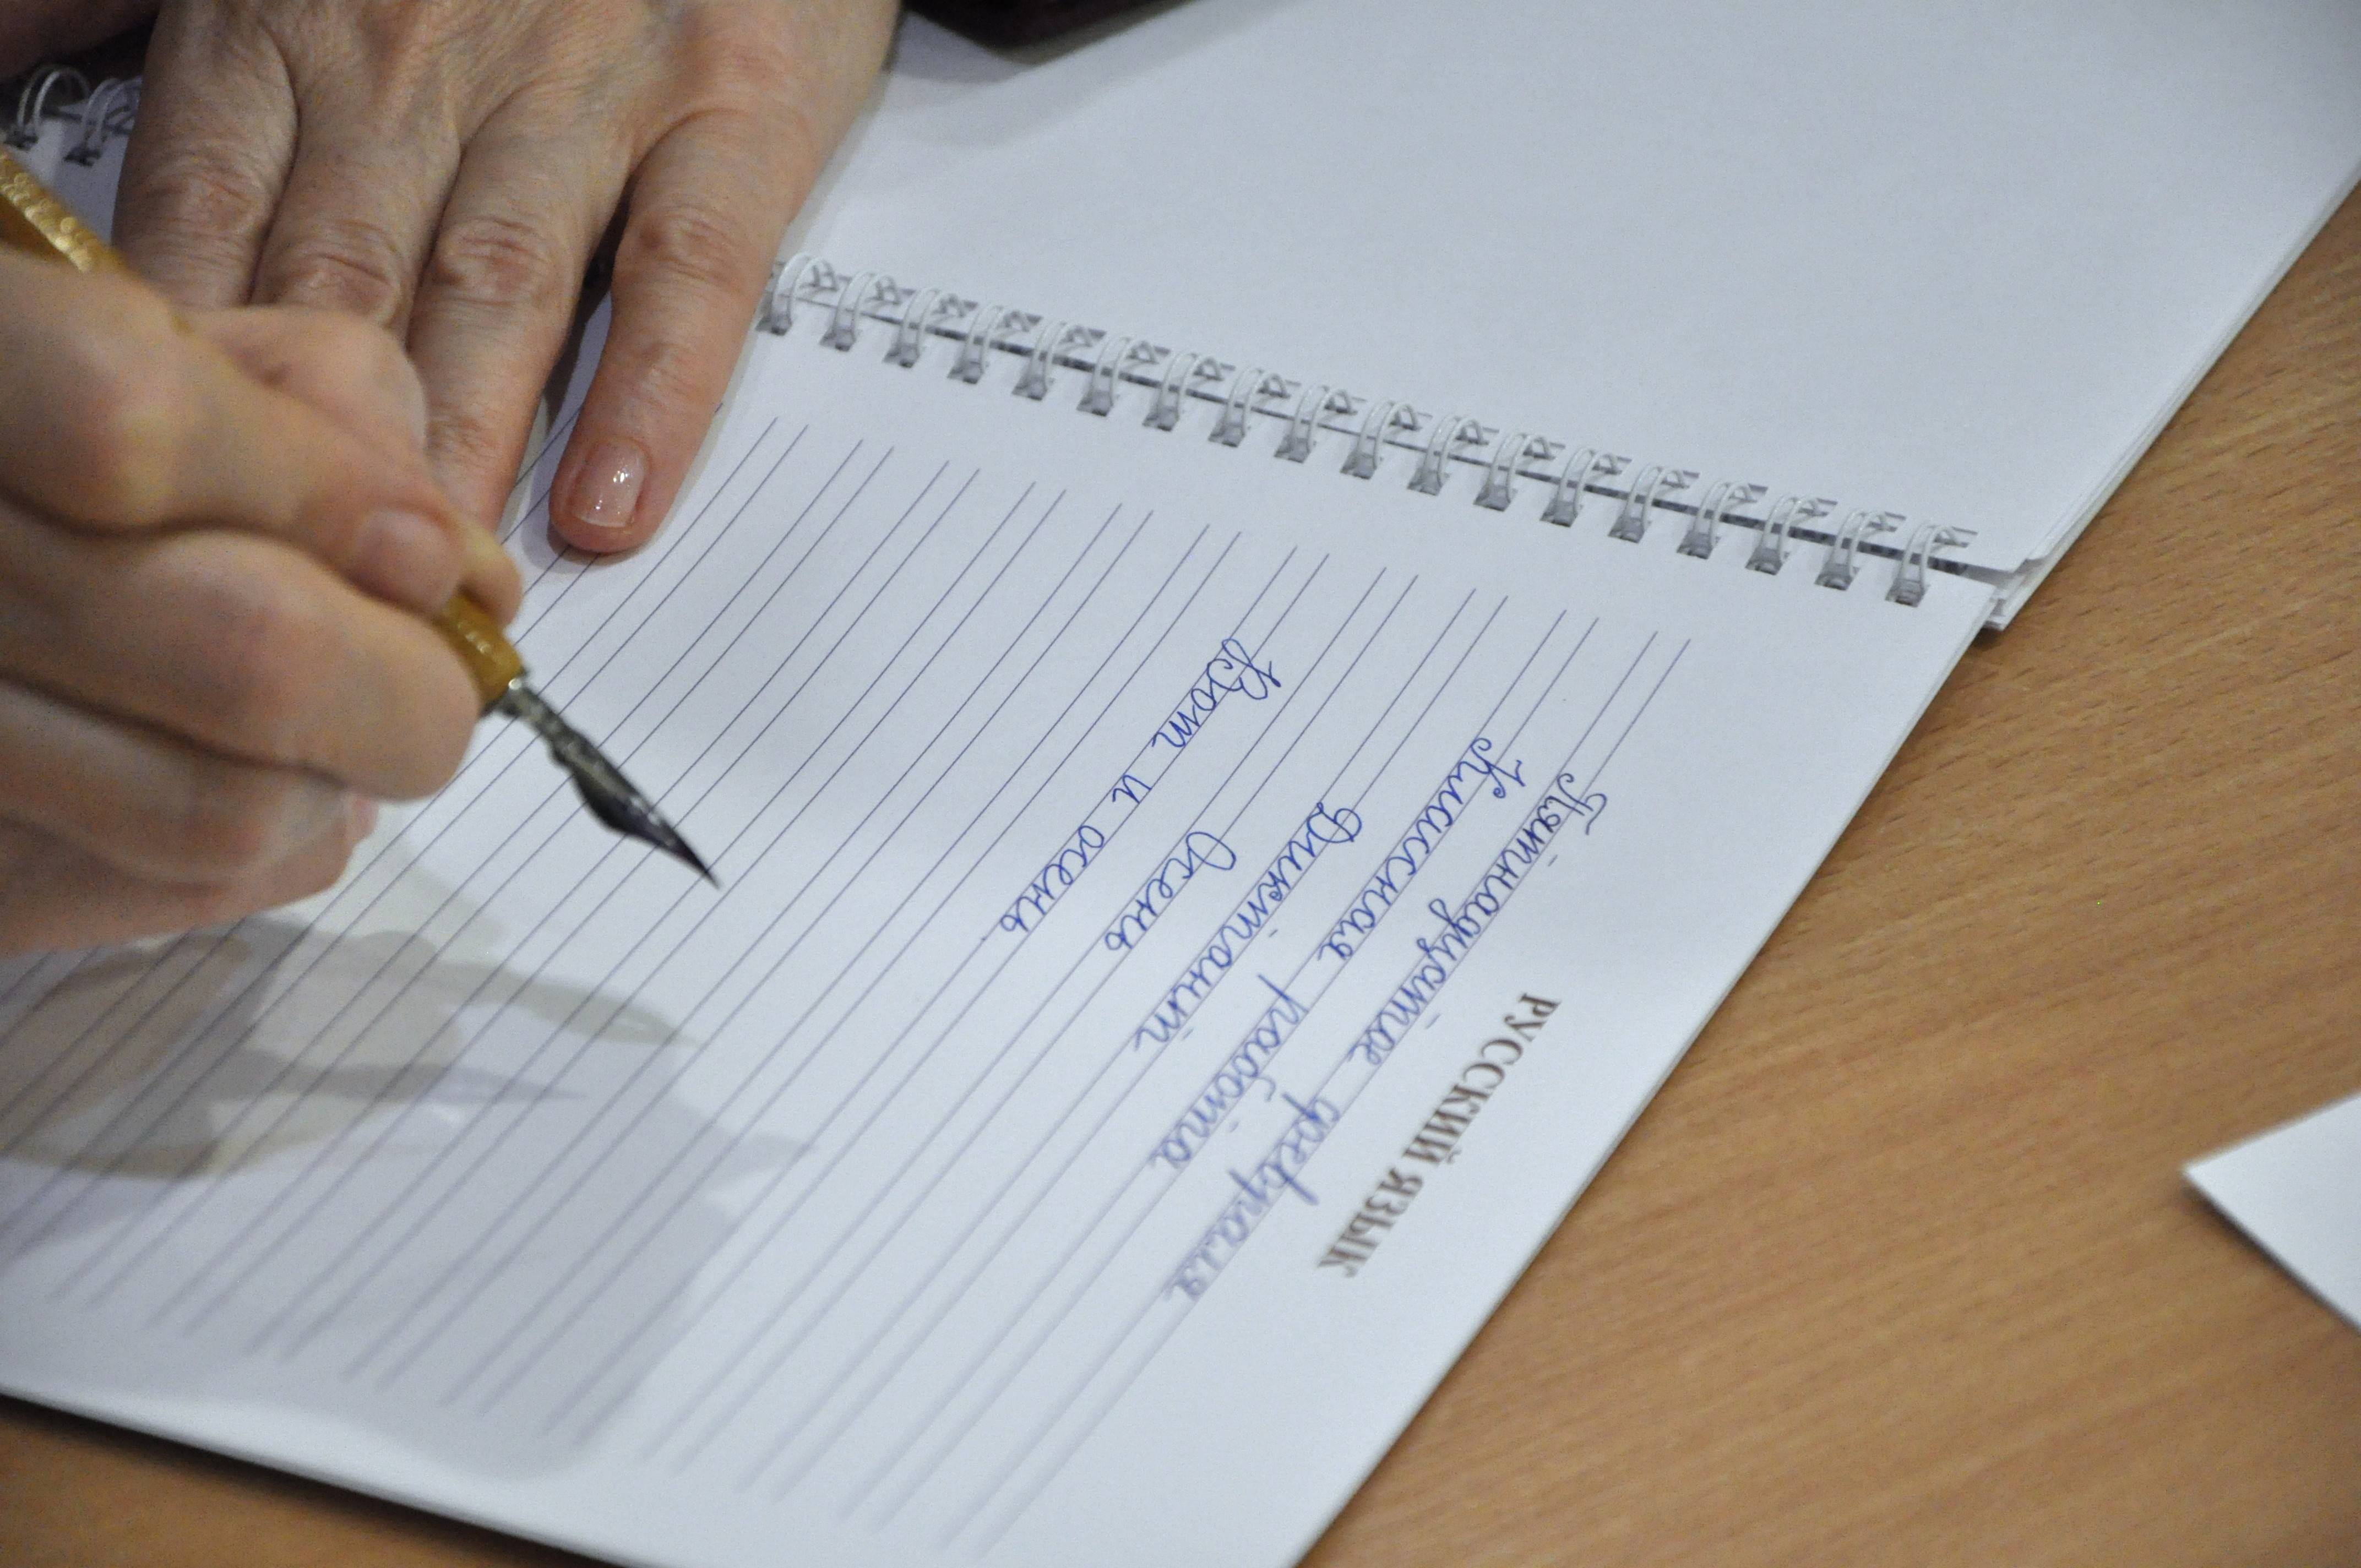 РУССКИЙ ЯЗЫК
Пятнадцатое февраля
Классная работа
Диктант
Осень
Вот и осень